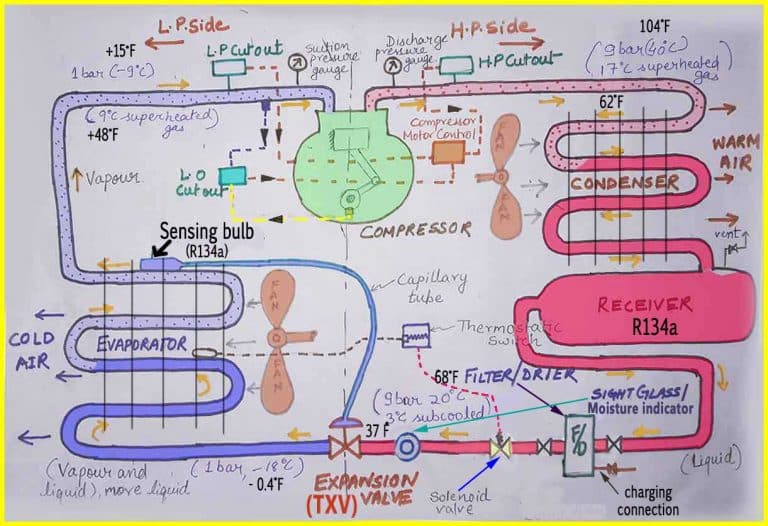 L.P.Side
H.P.Side
104°F
+15°F
L.P Cutout
Suction
pressure
gauge
Discharge
pressure
gauge
H.P Cutout
9 bar (40°C)
17°C superheated
gas
1 bar (-9°C)
62°F
(9°C superheated)
gas
+48°F
Compressor
Motor Control
FAN
FAN
WARM
AIR
L.O
Cut out
Vapour
CONDENSER
Sensing bulb
(R134a)
COMPRESSOR
vent
Capillary
tube
RECEIVER
R134a
FAN
FAN
COLD
AIR
EVAPORATOR
Thermostatic
Switch
68°F
FILTER/DRIER
(9bar 20°C
3°C subcooled)
SIGHT GLASS/
Moisture indicator
37 F
F/D
(Vapour and
liquid), more liquid
(1 bar, -18°C)
- 0.4°F
EXPANSION
VALVE
(TXV)
Solenoid
valve
(Liquid)
charging
connection